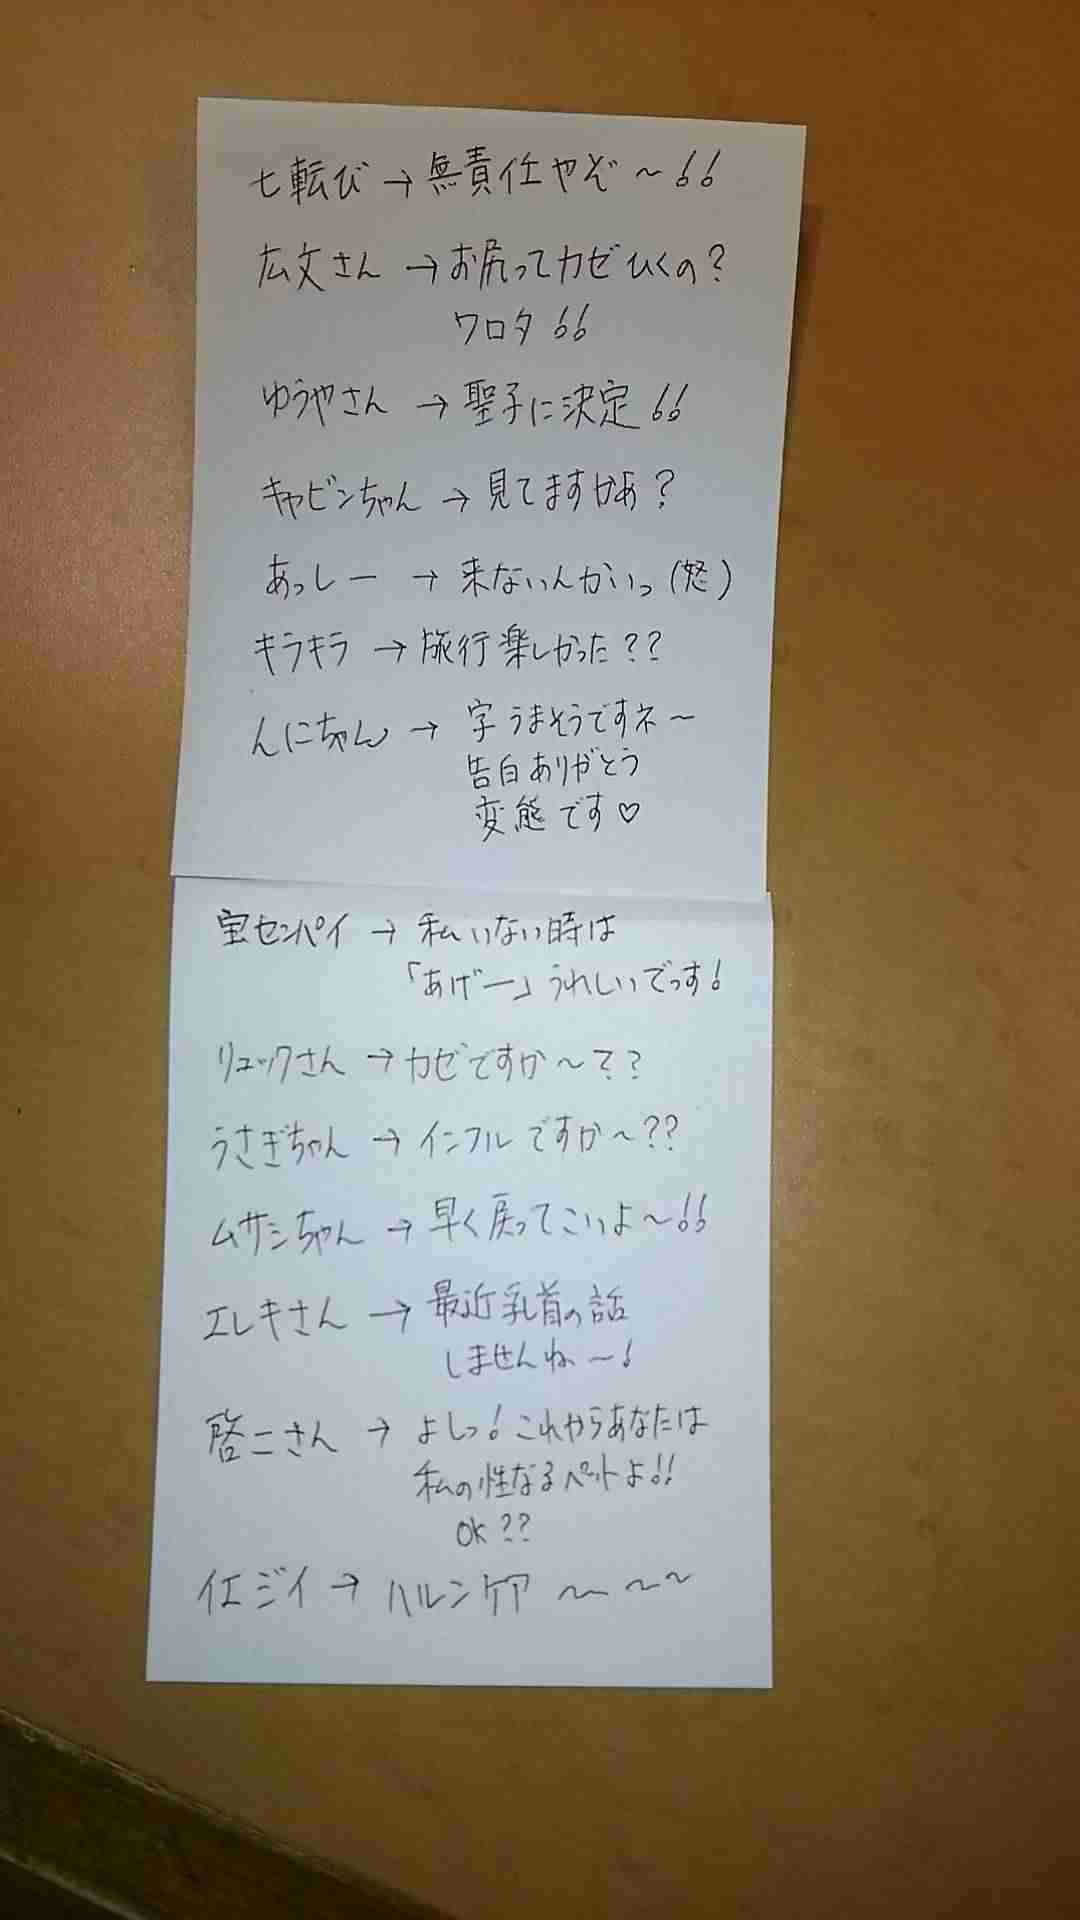 七転び→無責任やぞ～!!
広文さん→お尻ってカゼひくの?
ワロタ!!
ゆうやさん→聖子に決定!!
キャビンちゃん→見てますかあ?
あっしー→来ないんかいっ(怒)
キラキラ→旅行楽しかった??
んにちゃん→字うまそうですネ～
告白ありがとう
変態です♡
宝センパイ→私いない時は
「あげー」うれしいでっす!
リュックさん→カゼですか～??
うさぎちゃん→インフルですか～??
ムサシちゃん→早く戻ってこいよ～!!
エレキさん→最近乳首の話
しませんね～!
啓二さん→よしっ!これからあなたは
私の性なるペットよ!!
OK??
イエジイ→ハルンケア～～～